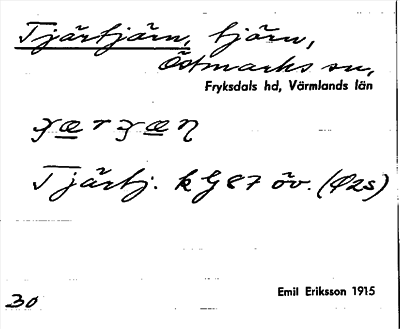 Tjärtjärn, tjärn,
Östmarks sn,
Fryksdals hd, Värmlands län
Tjärtj. k G 87 öv. (Ø2s)
Emil Eriksson 1915
30